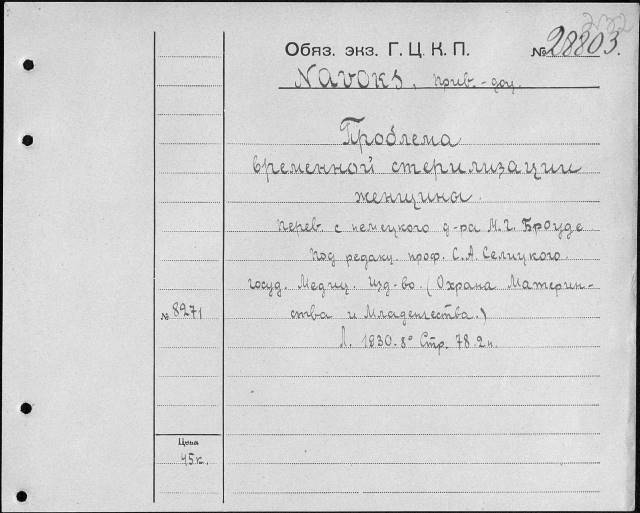 Обяз. экз. Г. Ц. К. П. № 28803.
Navoks, прив.-доц.
Проблема
временной стерилизации
женщины.
Перев. с немецкого д-ра М. Г. Броуде
Под редакц. проф. С. А. Селицкого.
Госуд. Медиц. Изд-во. (Охрана Материн-
ства и Младенчества.)
№ 8271
Л. 1930. 8° Стр. 78. 2 н.
Цена
45 к.